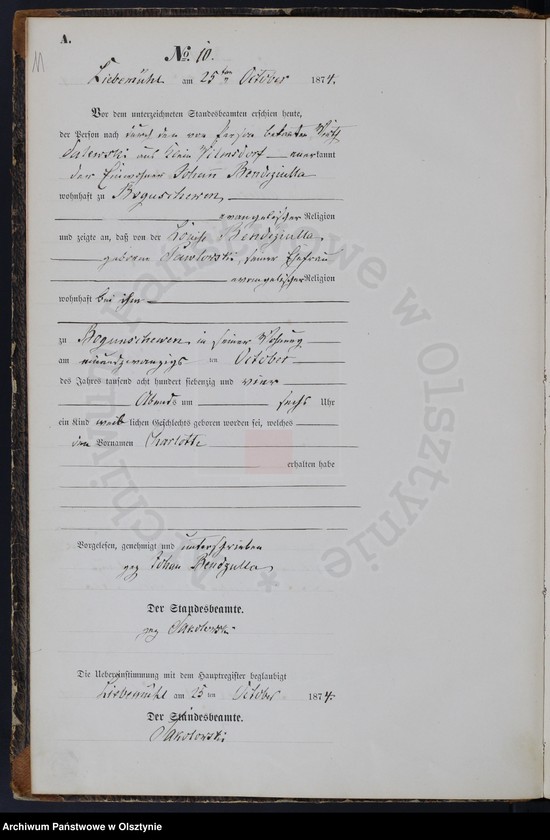 A.
11
No. 10.
Liebemühl am 25ten October 1874.
Vor dem unterzeichneten Standesbeamten erschien heute,
der Person nach durch den von Person bekannten Wirth
Salewski aus Klein anerkannt
der Einwohner Johann Bendziulla
wohnhaft zu Boguschewen
evangelischer Religion
und zeigte an, daß von der Louise Bendziulla,
geborene Pawlowski, seiner Ehefrau
evangelischer Religion
wohnhaft bei ihm
zu Boguschewen in seiner Wohnung
am einundzwanzigs ten October
des Jahrs tausend acht hundert siebenzig und vier
Abends um sechs Uhr
ein Kind weib lichen Geschlechts geboren worden sei, welches
den Vornamen Charlotte
erhalten habe
Vorgelesen, genehmigt und unterschrieben
gez Johan Bendzulla
Der Standesbeamte.
gez Sakolowski
Die Uebereinstimmung mit dem Hauptregister beglaubigt
Liebemühl am 25 ten October 1874.
Der Standesbeamte.
Sakolowski
Archiwum Państwowe w Olsztynie
Archiwum Państwowe w Olsztynie